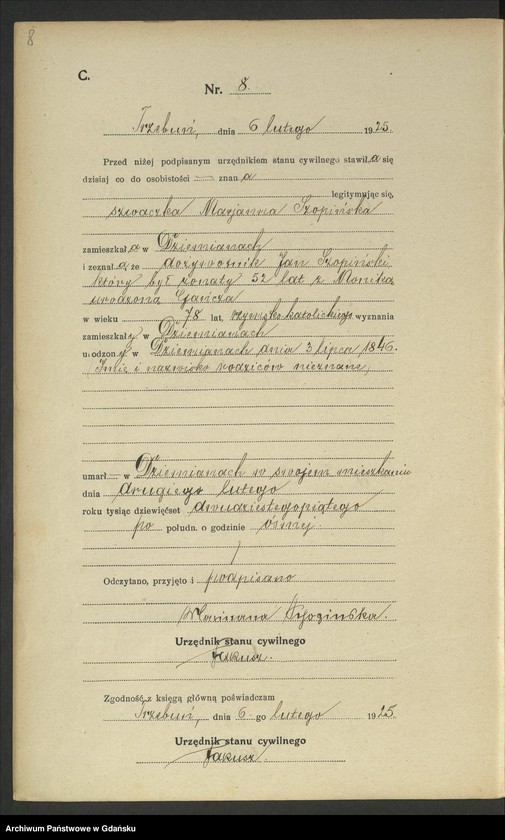 8
C.
Nr. 8.
Trzebuń, dnia 6 lutego 1925.
Przed niżej podpisanym urzędnikiem stanu cywilnego stawił a się
dzisiaj co do osobistości — znan a
legitymując się,
szwaczka Marjanna Szopińska
zamieszkał a w Dziemianach
i zeznał a, że dożywotnik Jan Szopiński
który był żonaty 52 lat z Moniką
urodzoną
w wieku 78 lat, rzymsko-katolickiego wyznania
zamieszkał y w Dziemianach
urodzony w Dziemianach dnia 3 lipca 1846.
(Imię i nazwisko rodziców nieznane)
umarł — w Dziemianach w swojem mieszkaniu
dnia drugiego lutego
roku tysiąc dziewięćset dwudziestegopiątego
po połudn. o godzinie ósmej.
Odczytano, przyjęto i podpisano
Marianna
Urzędnik stanu cywilnego
Jakusz.
Zgodność z księgą główną poświadczam
Trzebuń, dnia 6. go lutego 1925.
Urzędnik stanu cywilnego
Jakusz.
Archiwum Państwowe w Gdańsku